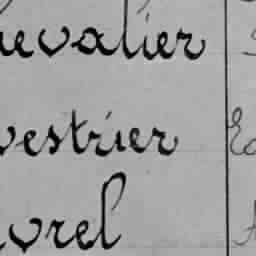 hevalier
vestrier
orel